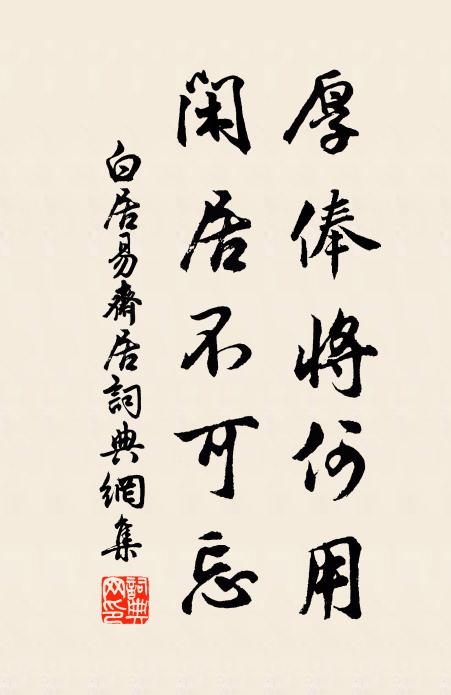 厚俸將何用
閑居不可忘
白居易齋居詞典網集
詞典
网印